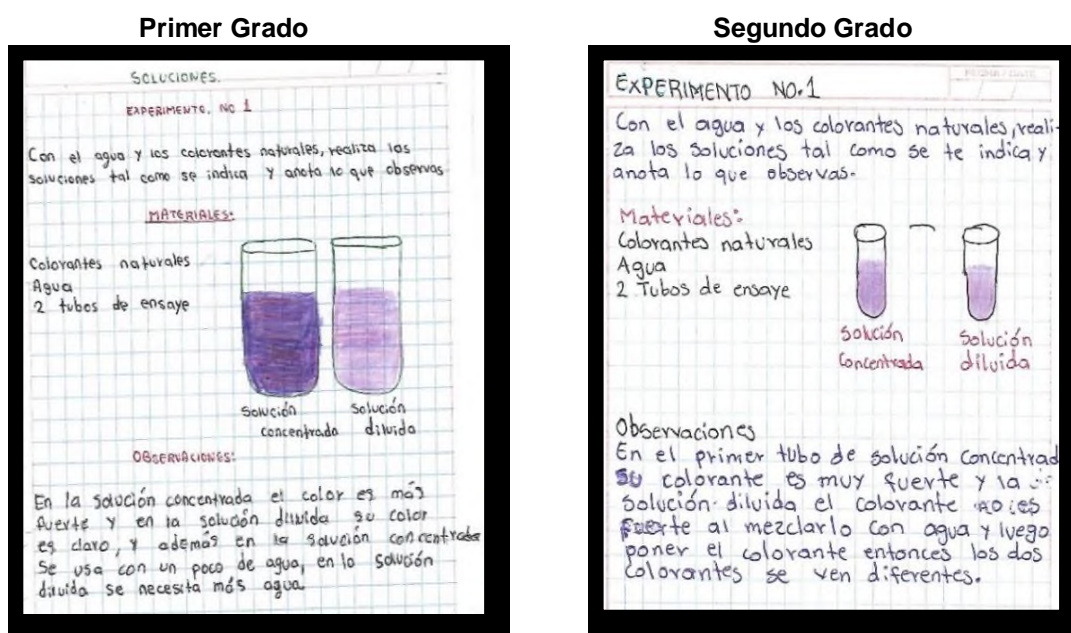 Primer Grado
SOLUCIONES.
EXPERIMENTO. NO 1
Con el agua y los colorantes naturales, realiza las
soluciones tal como se indica y anota lo que observas
MATERIALES:
Colorantes naturales
Agua
2 tubos de ensaye
Solución concentrada
Solución diluida
OBSERVACIONES:
En la solución concentrada el color es más
fuerte y en la solución diluida su color
es claro, y además en la solución concentrada
se usa con un poco de agua, en la solución
diluida se necesita más agua
Segundo Grado
FECHA / DATE
EXPERIMENTO NO.1
Con el agua y los colorantes naturales, reali-
za los soluciones tal como se te indica y
anota lo que observas.
Materiales:
Colorantes naturales
Agua
2 Tubos de ensaye
Solución
Concentrada
Solución
diluida
Observaciones
En el primer tubo de solución Concentrad
su colorante es muy fuerte y la
solución diluida el colorante no es
fuerte al mezclarlo con agua y luego
poner el colorante entonces los dos
colorantes se ven diferentes.